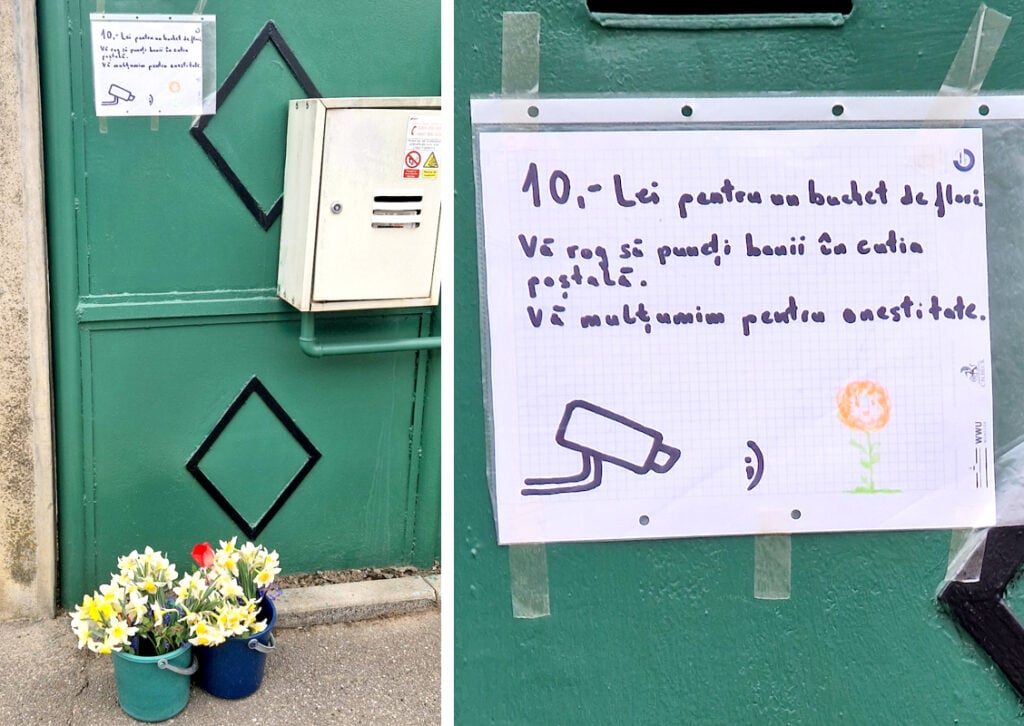 10,- Lei pentru un buchet de flori
Vă rog să puneți banii în cutia
poștală.
Vă mulțumim pentru onestitate.
:)
10,- Lei pentru un buchet de flori
Vă rog să puneți banii în cutia
poștală.
Vă mulțumim pentru onestitate.
:)
WWU